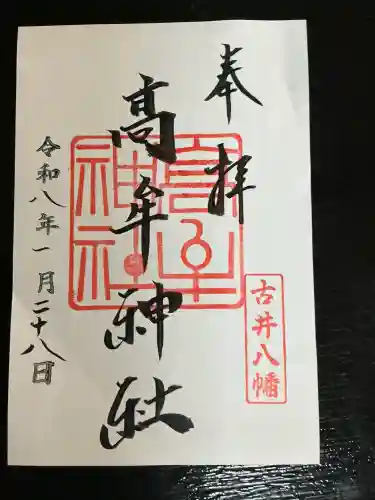 奉拝
古井八幡
高牟神社
令和八年一月二十八日